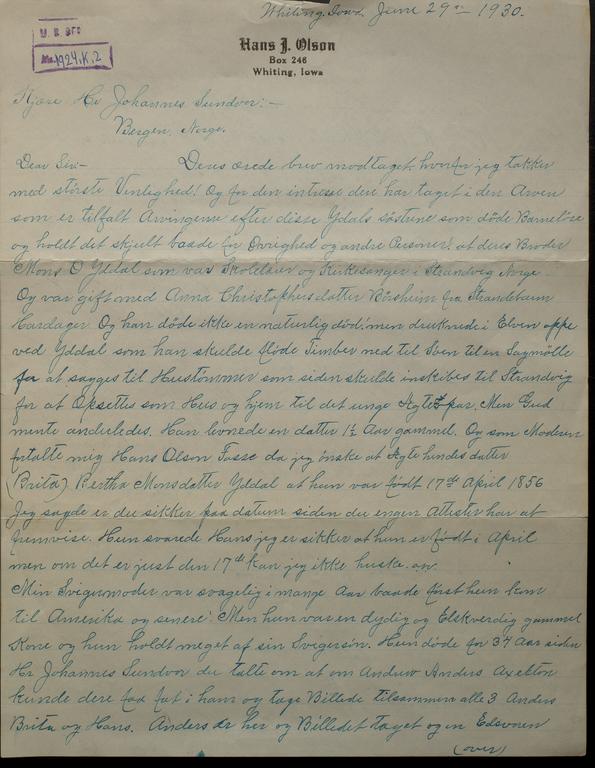 Whiting, Iowa. June 29th 1930.
U. B. BER
Ms. 1924. K. 2
Hans J. Olson
Box 246
Whiting, Iowa
Kjære Hr Johannes Sundvor:—
Bergen, Norge.
Dear Sir— Deres ærede brev modtaget hvorfor jeg takker
med största Venlighed! Og for den intresse dere har taget i den Arven
som er tilfalt Arvingerne efter disse Ydals söstrene som döde Barnelöse
og holdt det skjult baade for Övrighed og andre Personer, at deres Broder
Mons O Yldal som var Skolelærer og Kirkesanger i Strandvig Norge.
Og var gift med Anna Christophersdatter Börsheim fra Strandebarm
Hardager. Og han döde ikke en naturlig död! men druknede i Elven oppe
ved Yddal som han skulde flöde Timber ned til Söen til en Sagmölle
for at sagges til Hustommer som siden skulde inskibes til Strandvig
for at Opsettes som Hus og hjem til det unge Ægtepar. Men Gud
mente anderledes. Han levnede en datter 1½ Aar gammel. Og som Moderen
fortalte mig Hans Olson Fosse da jeg önske at Ægte hendes datter
(Brita) Bertha Monsdatter Yddal at hun var födt 17de April 1856
Jeg sagde er du sikker paa datum siden du engen Attester har at
fremvise. Hun svarede Hans jeg er sikker at hun er födt i April
men om det er just den 17th kan jeg ikke huske.
Min Svigermoder var svagelig i mange Aar baade först hun kom
til Amerika og senere! Men hun var en dydig og Elskverdig gammel
Kone og hun holdt meget af sin Svigersön. Hun döde for 34 Aar siden
Hr Johannes Sundvor du talte om at om Andrew Anders Axelton
kunde dere faa fat i ham og tage Billede tilsammen alle 3 Anders
Brita og Hans. Anders er her og Billedet taget og en Edsvoren
(over)